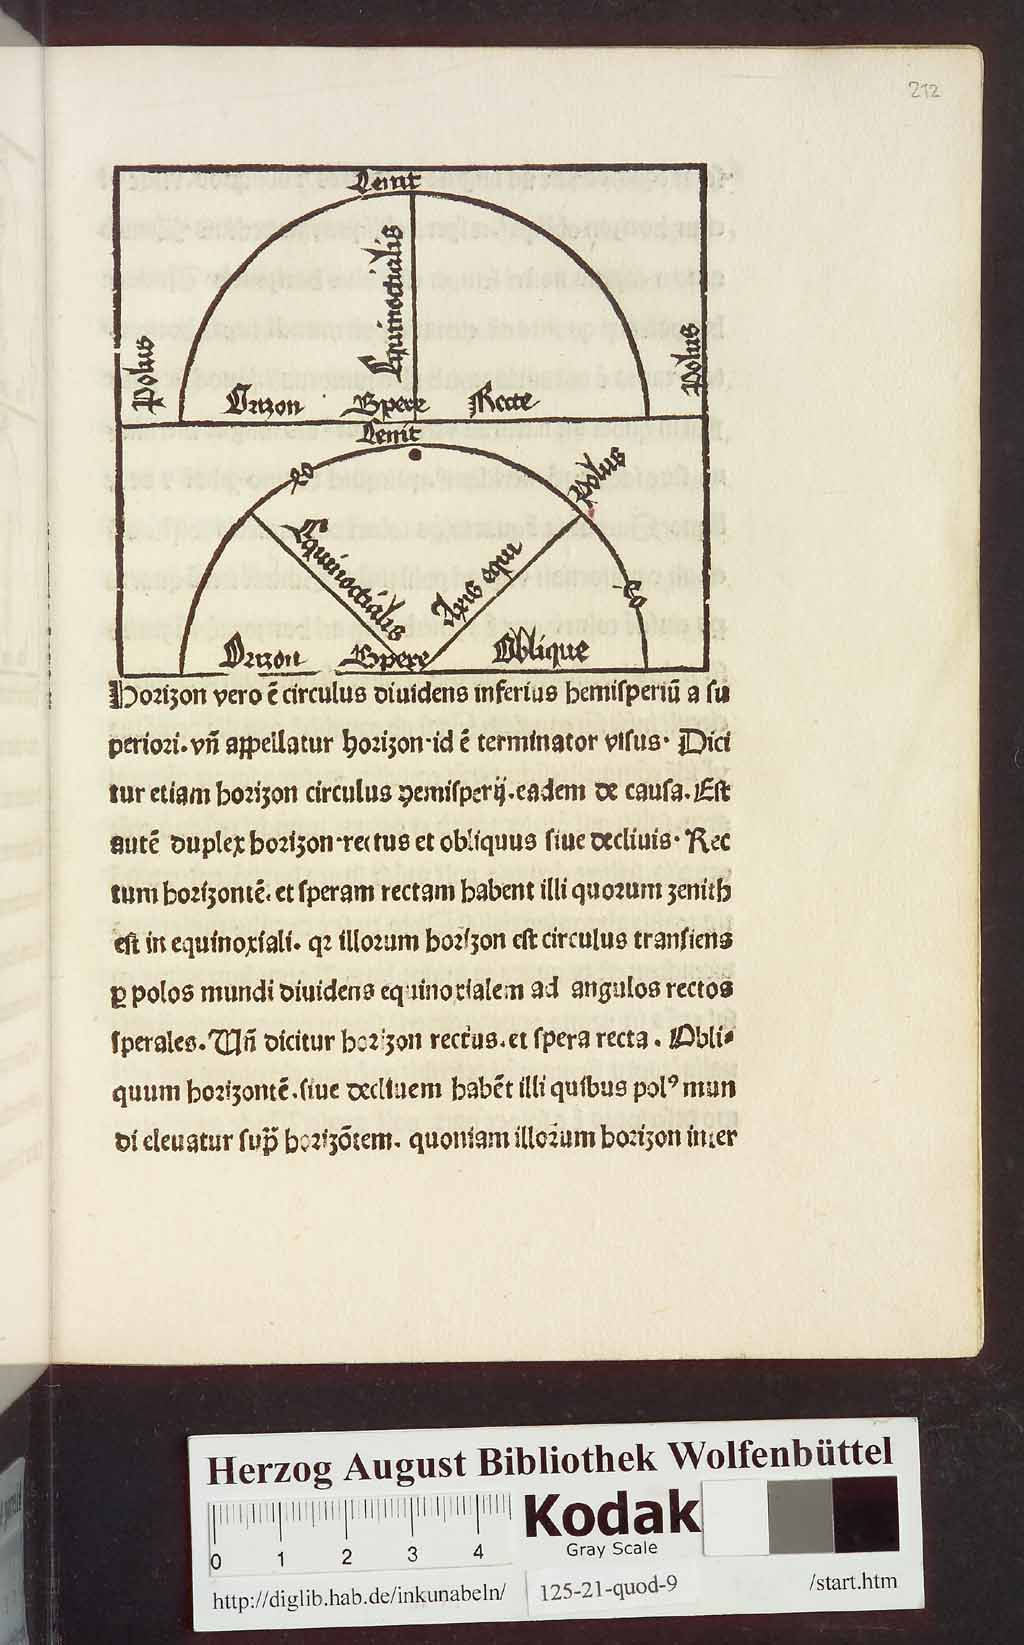 212
Cenit
Equinoctialis
Polus
Polus
Orizon Spere Recte
Cenit
Polus
Equinoctialis
Axis equi
Orizon Spere Oblique
Horizon vero ē circulus diuidens inferius hemisperiū a su
periori. vñ appellatur horizon·id ē terminator visus· Dici
tur etiam horizon circulus hemisperij.eadem de causa. Est
autē duplex horizon·rectus et obliquus siue decliuis· Rec
tum horizontē. et speram rectam habent illi quorum zenith
est in equinoxiali. qꝛ illorum horizon est circulus transiens
ꝑ polos mundi diuidens equinoxialem ad angulos rectos
sperales. Vñ dicitur horizon rectus.et spera recta. Obli⸗
quum horizontē.siue decliuem habēt illi quibus polꝰ mun
di eleuatur sup̄ horizōtem. quoniam illorum horizon inter
Herzog August Bibliothek Wolfenbüttel
0 1 2 3 4
Kodak
Gray Scale
http://diglib.hab.de/inkunabeln/ 125-21-quod-9 /start.htm